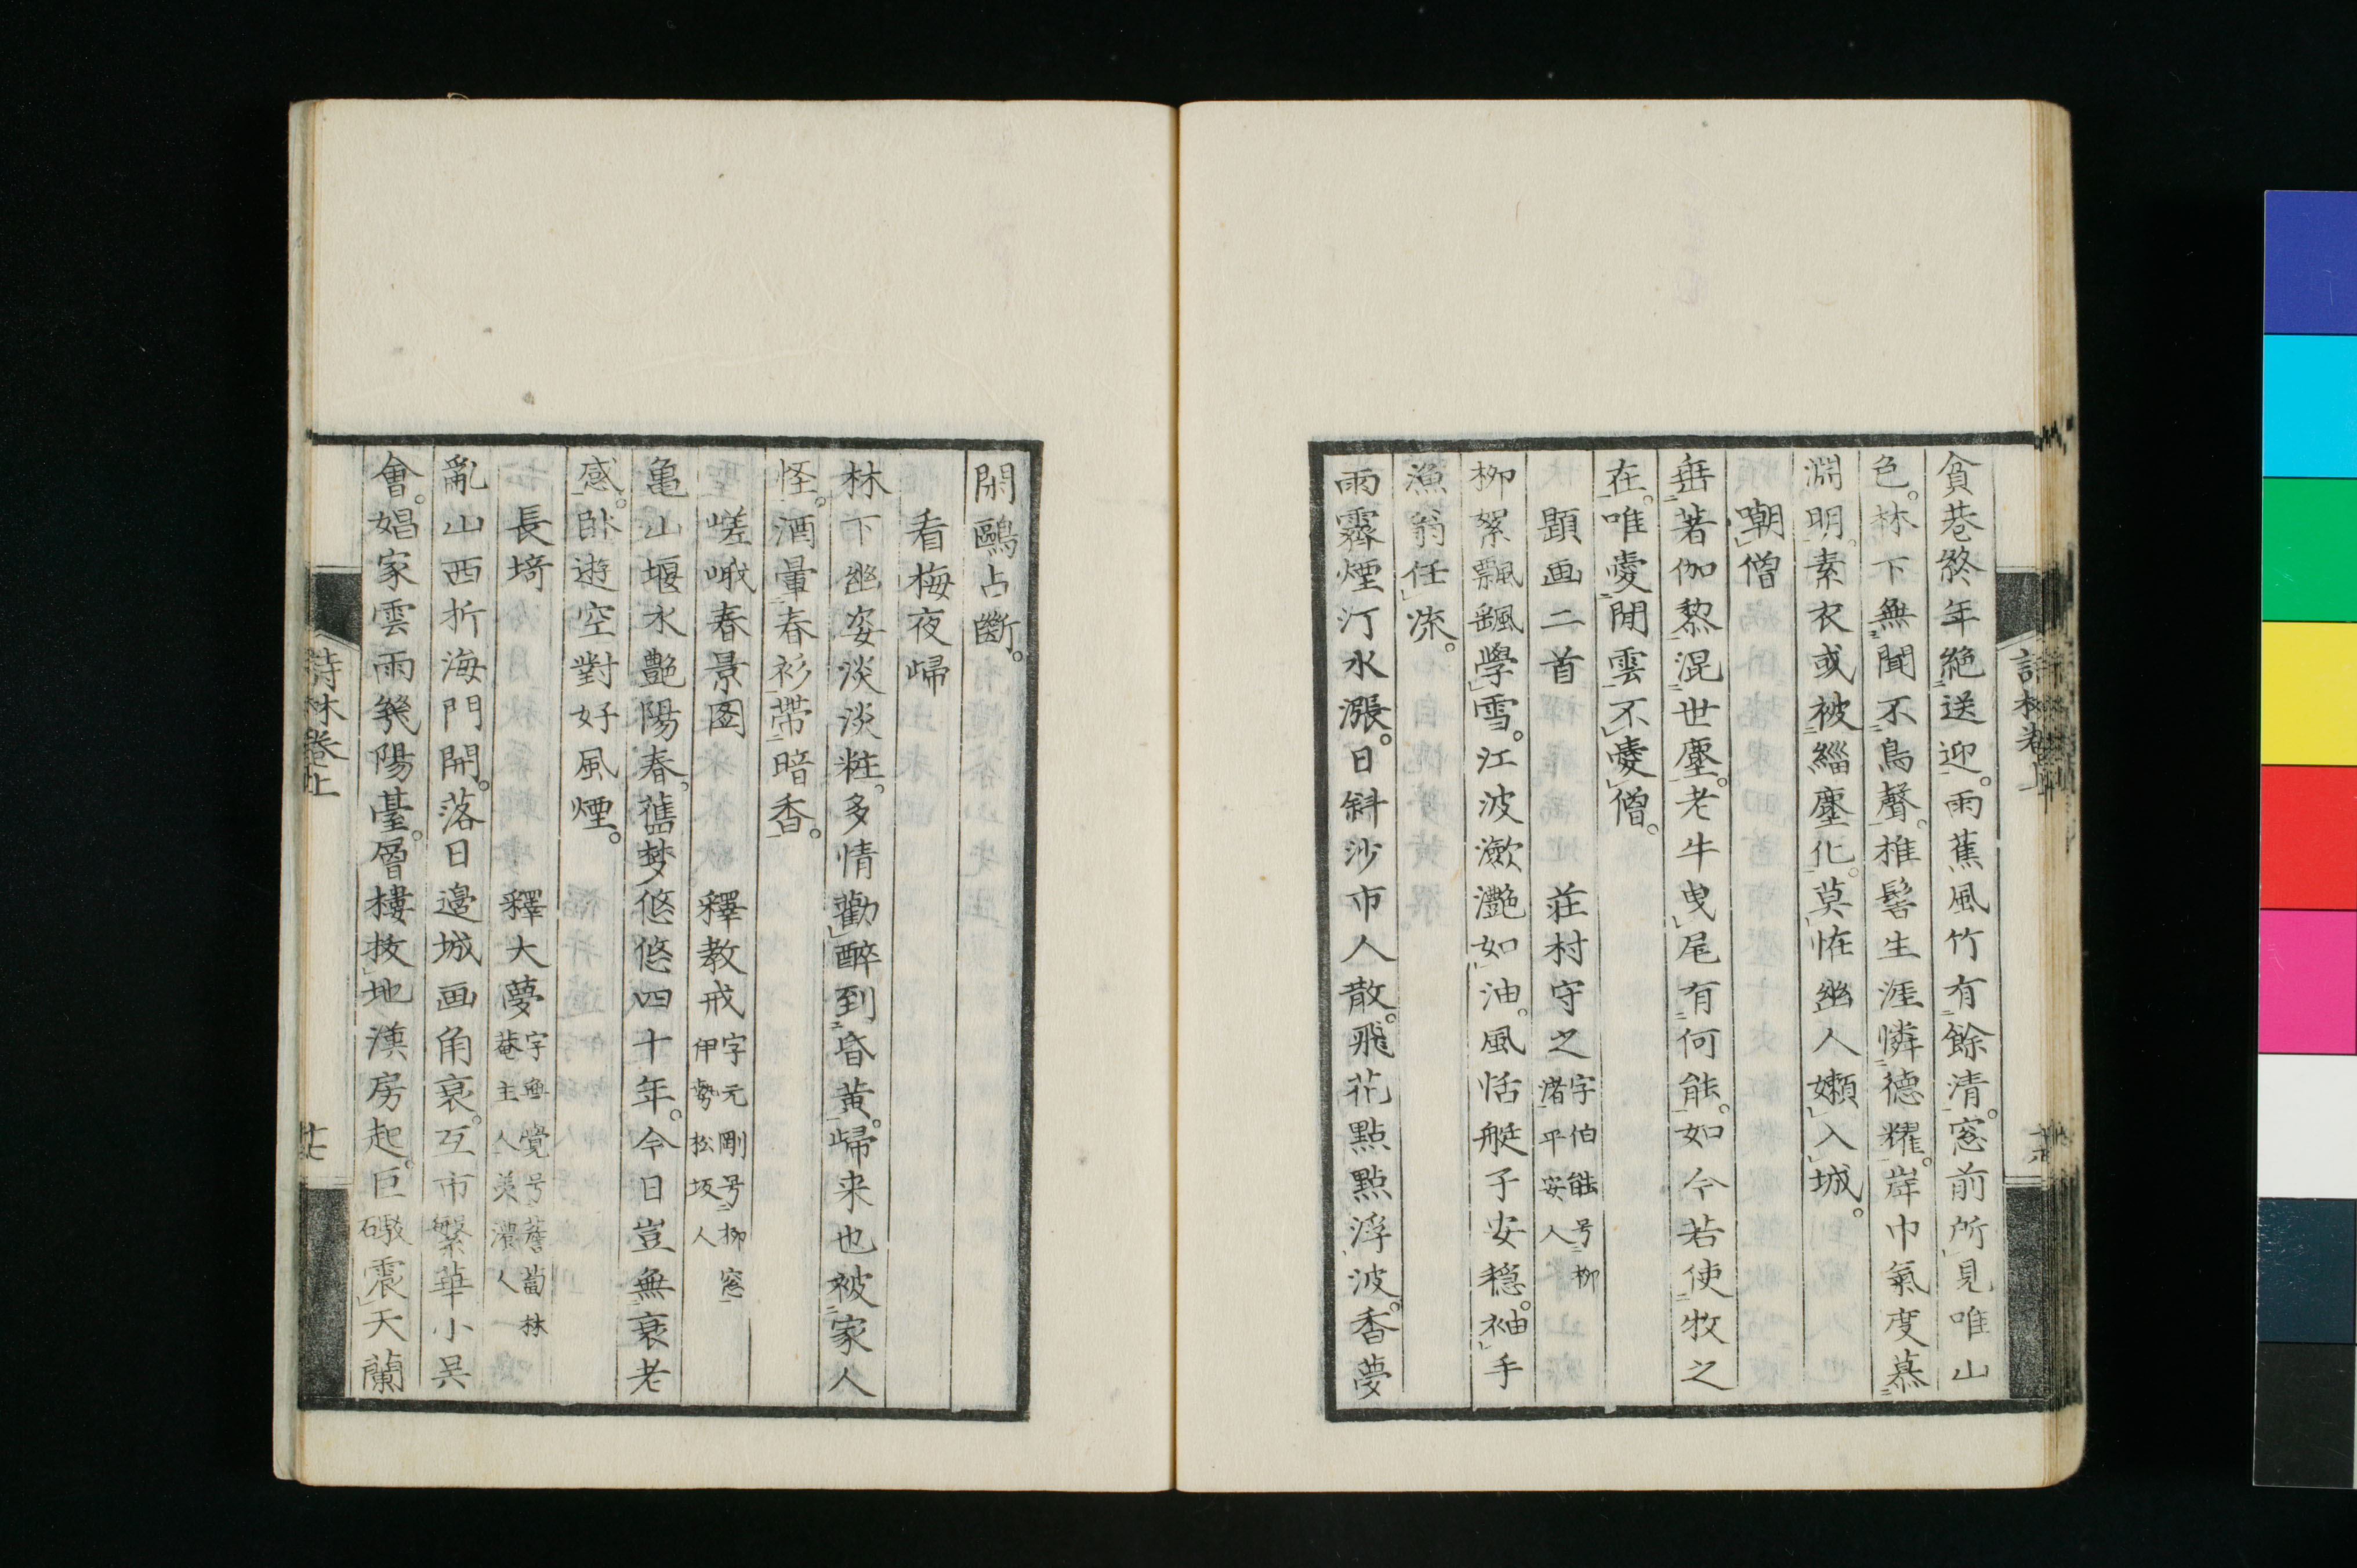 貧巷終年絶送迎。雨蕉風竹有餘清。窓前所見唯山
色。林下無聞不鳥聲。椎髻生涯憐德耀。岸巾氣度慕
淵明。素衣或被緇塵化。莫怪幽人嬾入城。
嘲僧
垂著伽黎混世塵。老牛曳尾有何能。如今若使牧之
在。唯愛閒雲不愛僧。
題画二首 莊村守之 字伯能号柳渚平安人
柳絮飄飄學雪。江波潋灔如油。風恬艇子安穏。袖手
漁翁任流。
雨霽煙汀水漲。日斜沙市人散。飛花點點浮波。香夢
閑鷗占斷。
看梅夜歸
林下幽姿淡淡粧。多情勸醉到昏黄。歸来也被家人
怪。酒暈春衫帯暗香。
嵯峨春景图 釋教戒 字元剛号柳窓伊勢松坂人
亀山堰水艶陽春。舊梦悠悠四十年。今日豈無衰老
感。卧遊空對好風煙。
長埼 釋大夢 字無覺号薝蔔林菴主人美濃人
亂山西折海門開。落日邉城画角哀。互市繁華小吴
會。娼家雲雨幾陽臺。層樓拔地漢房起。巨礮震天蘭
詩林巻上
廿七